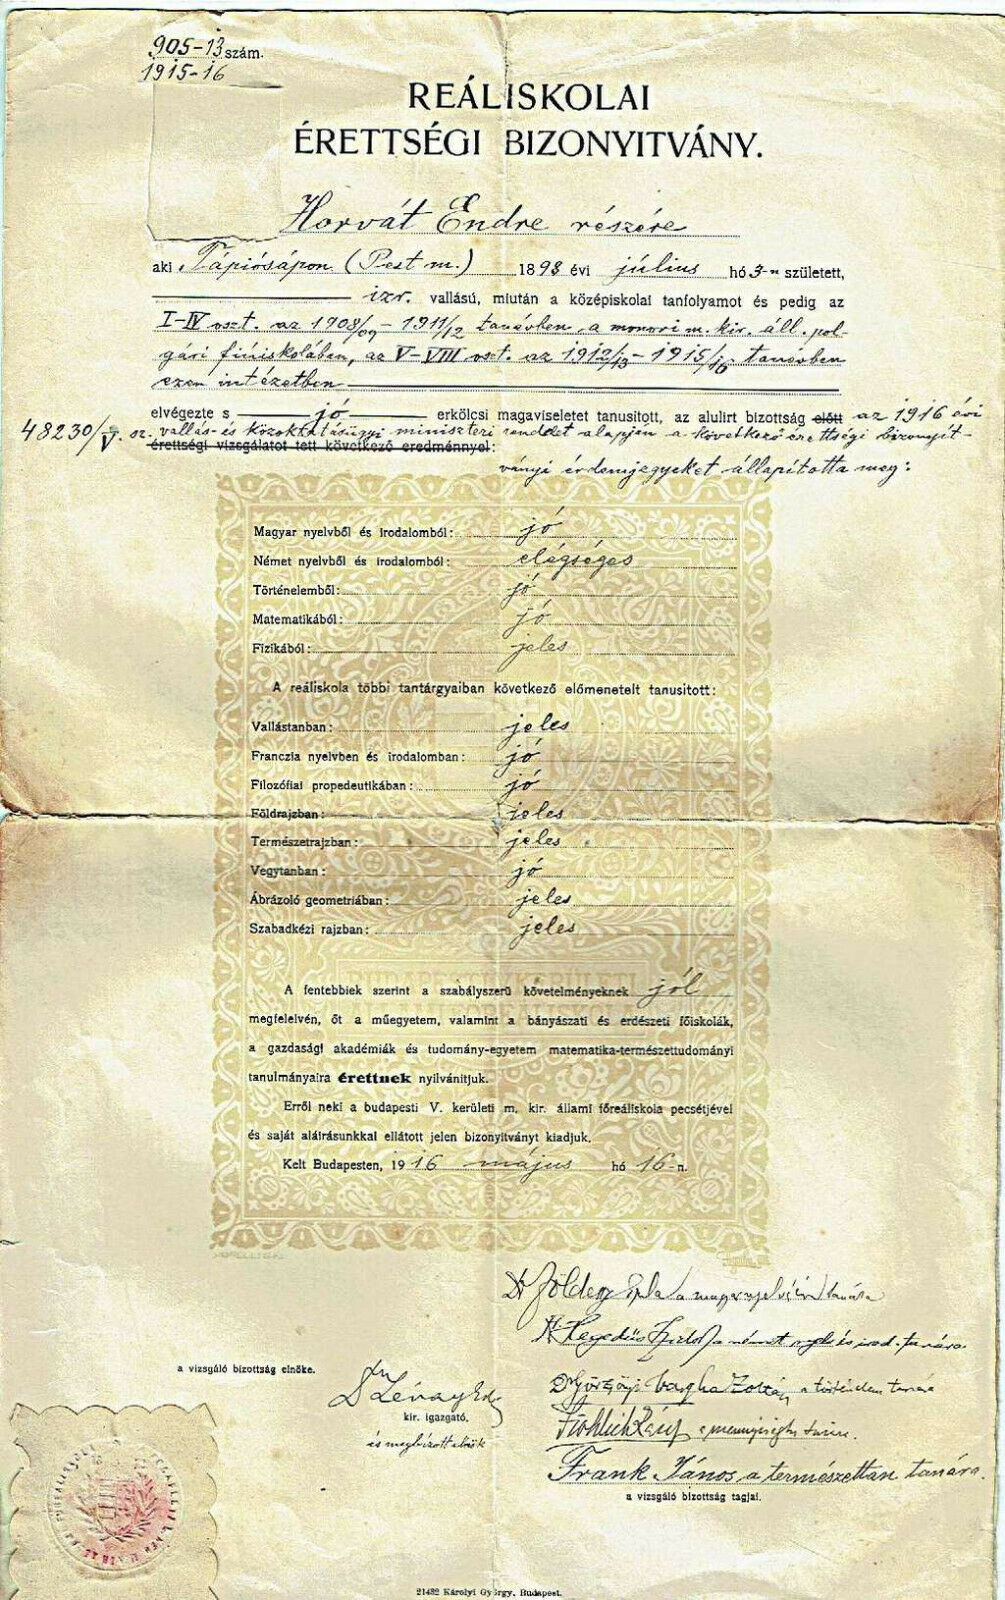 905-13 szám.
1915-16
REÁLISKOLAI
ÉRETTSÉGI BIZONYITVÁNY.
Horvát Endre részére
aki Tápiósápon (Pest m.) 1898 évi július hó 3-n született,
izr. vallású, miután a középiskolai tanfolyamot és pedig az
I-IV oszt. az 1908/09 - 1911/12 tanévben a monori m. kir. áll. pol-
gári fiúiskolában, az V-VIII oszt. az 1912/13 - 1915/16 tanévben
ezen intézetben
elvégezte s jó erkölcsi magaviseletet tanusított, az alulirt bizottság előtt az 1916 évi
48230/V. sz. vallás- és közoktatásügyi miniszteri rendelet alapján a következő érettségi bizonyít-
érettségi vizsgálatot tett következő eredménnyel:
ványi érdemjegyeket állapította meg:
Magyar nyelvből és irodalomból: jó
Német nyelvből és irodalomból: elégséges
Történelemből: jó
Matematikából: jó
Fizikából: jeles
A reáliskola többi tantárgyaiban következő előmenetelt tanusitott:
Vallástanban: jeles
Franczia nyelvben és irodalomban: jó
Filozófiai propedeutikában: jó
Földrajzban: jeles
Természetrajzban: jeles
Vegytanban: jó
Ábrázoló geometriában: jeles
Szabadkézi rajzban: jeles
A fentebbiek szerint a szabályszerű követelményeknek jól
megfelelvén, őt a műegyetem, valamint a bányászati és erdészeti főiskolák,
a gazdasági akadémiák és tudomány-egyetem matematika-természettudományi
tanulmányaira érettnek nyilvánitjuk.
Erről neki a budapesti V. kerületi m. kir. állami főreáliskola pecsétjével
és saját aláirásunkkal ellátott jelen bizonyitványt kiadjuk.
Kelt Budapesten, 1916 május hó 16-n.
Dr Földessy Gyula a magyar nyelv és ir. tanára
Hegedűs a német nyelv és irod. tanára.
a vizsgáló bizottság elnöke.
Dr Lévay Ede
Dr Györgyi Vargha Zoltán a történelem tanára
kir. igazgató,
Fröhlich Károly a mennyiségtan tanára.
és megbízott elnök
Frank János a természettan tanára.
a vizsgáló bizottság tagjai.
21482 Károlyi György, Budapest.